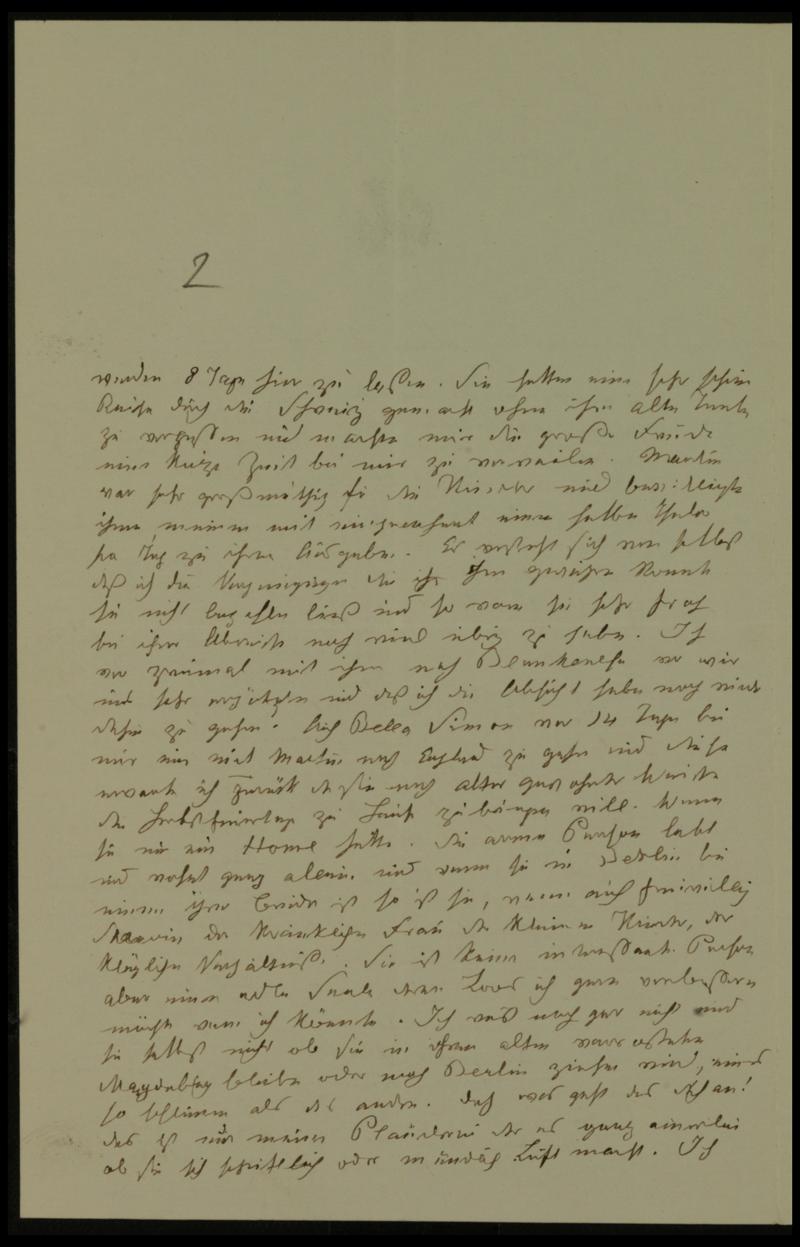 2
werden 8 Tage hier zu lassen. Sie hatten eine sehr schöne
Reise durch die Schweiz gemacht ohne ihre alte Tante
zu vergessen und machten mir die große Freude
eine kurze Zeit bei mir zu verweilen. Martin
war sehr großmüthig für die Kinder und bewilligte
ihnen, mit einen halben Thaler
pro Tag zu ihren Ausgaben. Er versteht sich von selbst
daß ich die Vergnügungen die ich ihnen gewähren konnte
sie nicht bezahlen ließ und so waren sie sehr froh
bei ihrer Abreise noch viel übrig zu haben. Ich
war zweimal mit ihnen nach Blankenese wo wir
uns sehr ergötzten und daß ich die Absicht habe noch einmal
dahin zu gehen. Auch Bella Simon war 14 Tage bei
mir um mit Martin nach England zu gehen und diese
erwarte ich zurück da sie nach alter gewohnter Weise
die Herbstfeiertage zu Haus zubringen will. Wenn
sie nur ein Home hätte. Die arme Person lebt
und wohnt ganz allein und wenn sie in Berlin bei
einem ihrer Brüder ist so ist sie, wenn auch freiwillig
Sklavin der kränklichen Frau der kleinen Kinder, der
kläglichen Verhältnisse. Sie ist keine interessante Person
aber eine edle Seele deren Loos ich gern verbessern
möchte wenn ich könnte. Ich weiß noch gar nicht und
sie selbst nicht ob sie in ihrem alten
Magdeburg bleiben oder nach Berlin ziehen wird, eines
so schlimm als das andere. Doch was geht das dich an!
das ist nur meine Plauderei der es ganz einerlei
ob sie sich schriftlich oder mündlich Luft macht. Ich